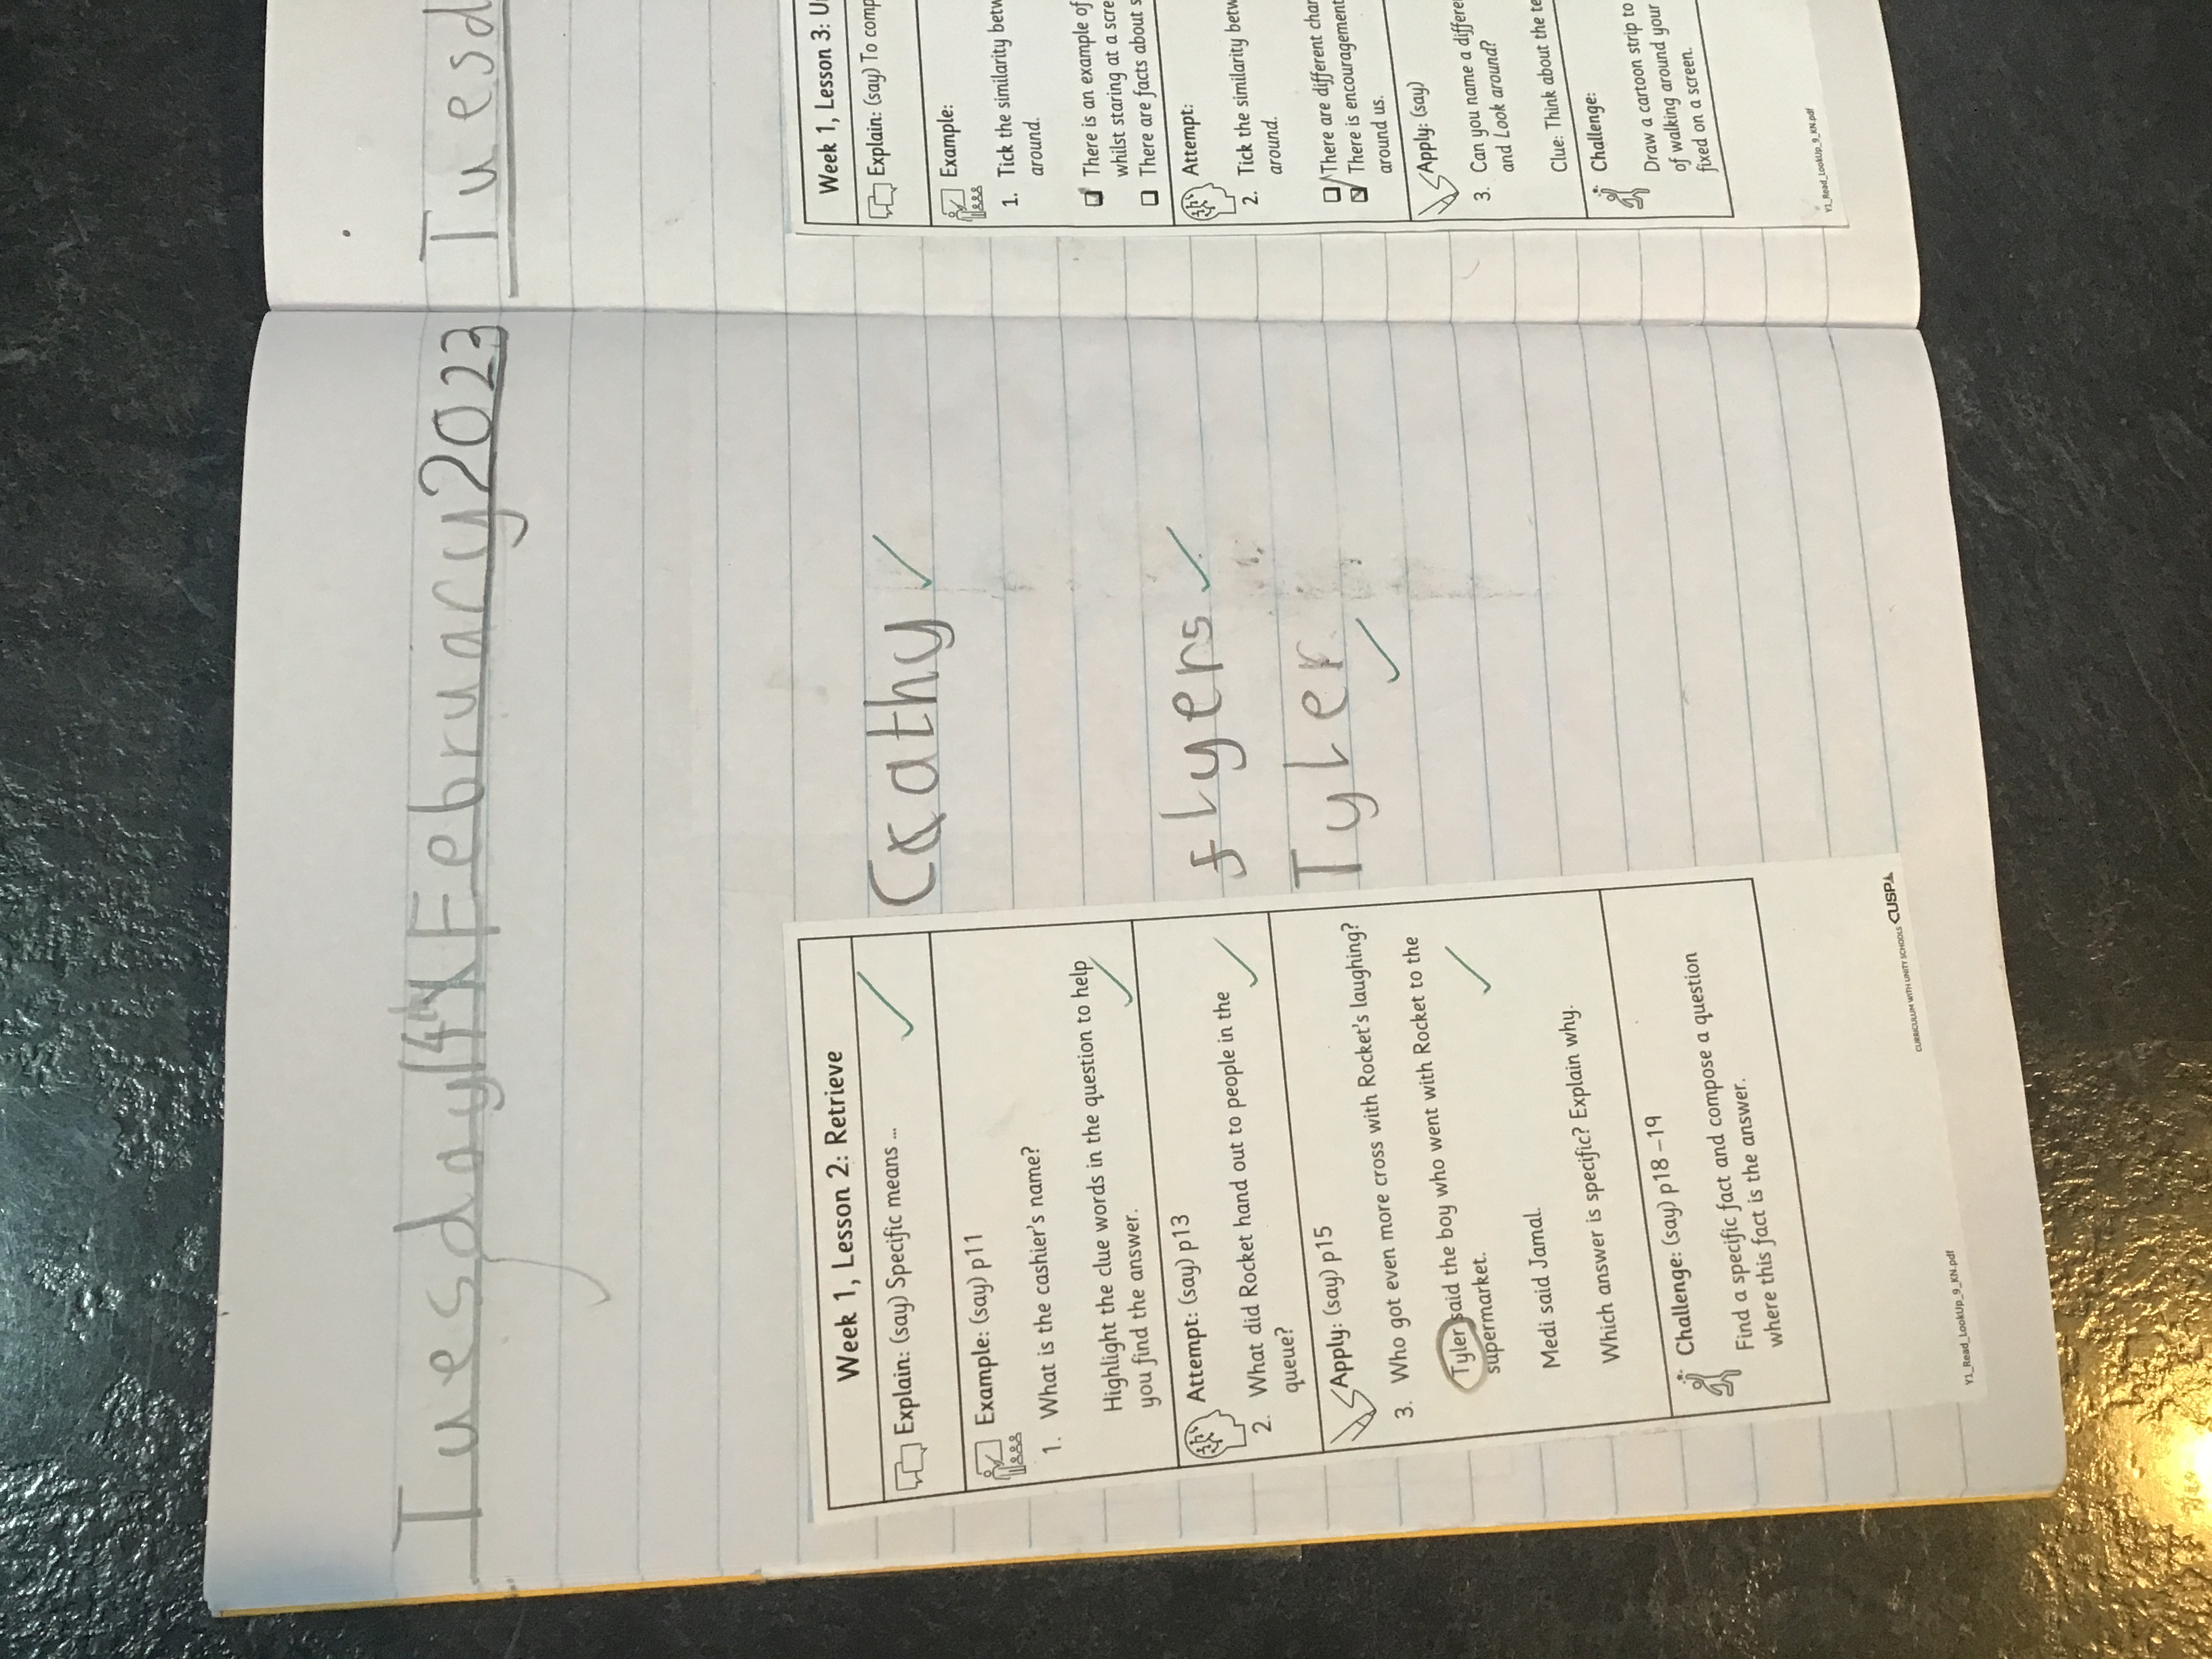 Tuesday 14th Februarcy 2023
Week 1, Lesson 2: Retrieve
Explain: (say) Specific means ...
Example: (say) p11
1. What is the cashier's name?
Highlight the clue words in the question to help
you find the answer.
Attempt: (say) p13
2. What did Rocket hand out to people in the
queue?
Apply: (say) p15
3. Who got even more cross with Rocket's laughing?
Tyler said the boy who went with Rocket to the
supermarket.
Medi said Jamal.
Which answer is specific? Explain why.
Challenge: (say) p18 – 19
Find a specific fact and compose a question
where this fact is the answer.
Y1_Read_LookUp_9_KN.pdf
CURRICULUM WITH UNITY SCHOOLS CUSP
Cathy
flyers
Tyler
Tuesd
Week 1, Lesson 3: U
Explain: (say) To comp
Example:
1. Tick the similarity betw
around.
There is an example of
whilst staring at a scre
There are facts about s
Attempt:
2. Tick the similarity betw
around.
There are different char
There is encouragement
around us.
Apply: (say)
3. Can you name a differe
and Look around?
Clue: Think about the te
Challenge:
Draw a cartoon strip to
of walking around your
fixed on a screen.
Y1_Read_LookUp_9_KN.pdf